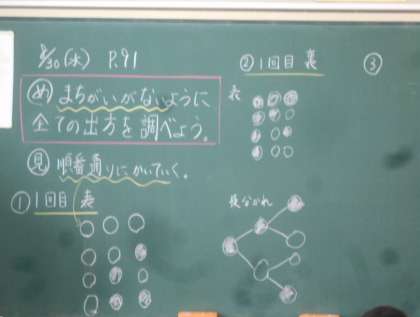 8/30(水) P.91
め まちがいがないように
全ての出方を調べよう。
見 順番通りにかいていく。
① 1回目 表
② 1回目 裏
③
枝分かれ